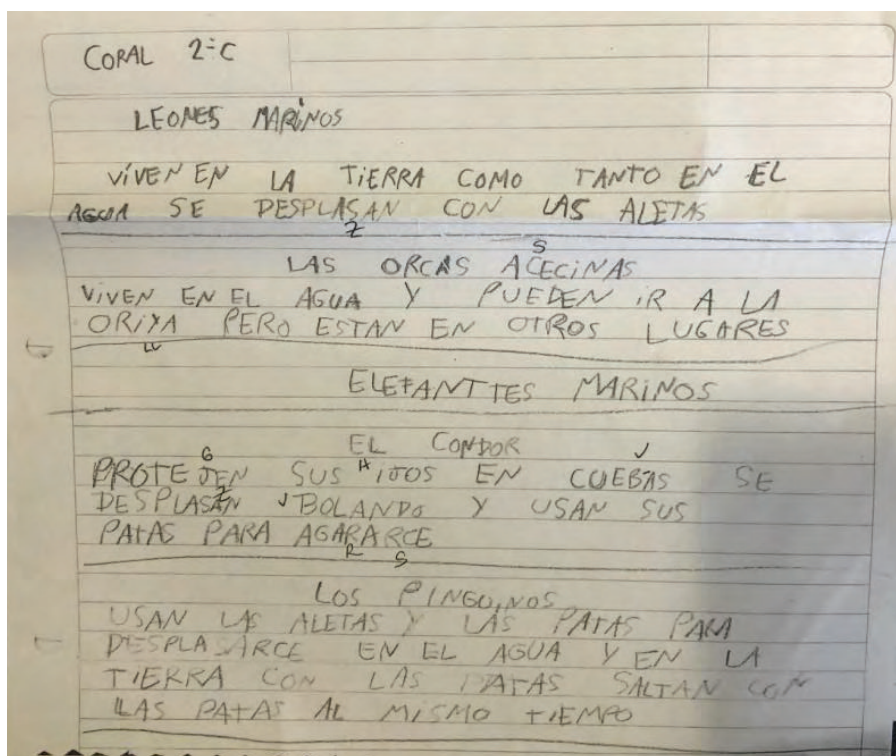 CORAL 2-C
LEONES MARiNOS
VíVEN EN LA TiERRA COMO TANTO EN EL
AGUA SE DESPLASAN CON LAS ALETAS
Z
S
LAS ORCAS ACECiNAS
ViVEN EN EL AGUA Y PUEDEN iR A LA
ORiYA PERO ESTAN EN OTROS LUGARES
LL
ELEFANTTES MARiNOS
EL CONDOR
G H V
PROTEJEN SUS iJOS EN CUEBAS SE
Z V
DESPLASAN BOLANDO Y USAN SUS
PATAS PARA AGARARCE
R S
LOS PINGUiNOS
USAN LAS ALETAS Y LAS PATAS PARA
DESPLASARCE EN EL AGUA Y EN LA
TIERRA CON LAS PATAS SALTAN CON
LAS PATAS AL MiSMO TiEMPO